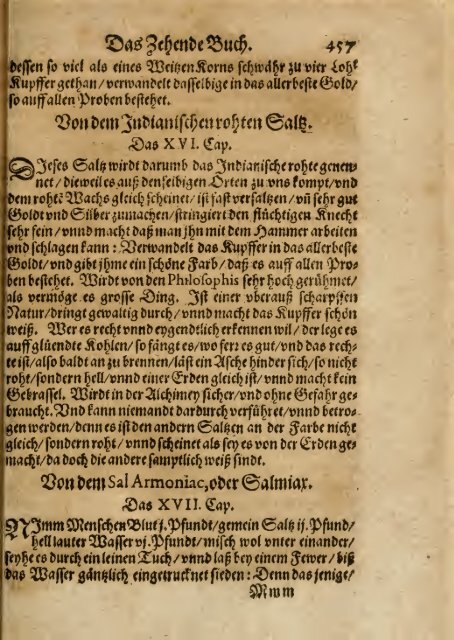 Das Zehende Buch. 457
dessen so viel als eines Weitzen Korns schwähr zu vier Loht
Kupffer gethan/verwandelt dasselbige in das allerbeste Gold/
so auff allen Proben bestehet.
Von dem Indianischen rohten Saltz.
Das XVI. Cap.
DIeses Saltz wirdt darumb das Indianische rohte genen-
net/dieweil es auß denselbigen Orten zu vns kompt/vnd
dem roht Wachs gleich scheinet/ist fast versaltzen/vñ sehr gut
Goldt vnd Silber zumachen/stringiert den flüchtigen Knecht
sehr fein/vnnd macht daß man jhn mit dem Hammer arbeiten
vnd schlagen kann: Verwandelt das Kupffer in das allerbeste
Goldt/vnd gibt jhme ein schöne Farb/daß es auff allen Pro-
ben bestehet. Wirdt von den Philosophis sehr hoch gerühmet/
als vermöge es grosse Ding. Ist einer vberauß scharpffen
Natur/dringt gewaltig durch/vnnd macht das Kupffer schön
weiß. Wer es recht vnnd eygendtlich erkennen wil/der lege es
auff glüendte Kohlen/so fängt es/wo fers es gut/vnd das rech-
te ist/alsobaldt an zu brennen/läst ein Asche hinder sich/so nicht
roht/sondern hell/vnnd einer Erden gleich ist/vnnd macht kein
Gebrassel. Wirdt in der Alchimey sicher/vnd ohne Gefahr ge-
braucht. Vnd kann niemandt dardurch verführet/vnnd betro-
gen werden/denn es ist den andern Saltzen an der Farbe nicht
gleich/sondern roht/vnnd scheinet als sey es von der Erden ge-
macht/da doch die andere samptlich weiß sindt.
Von dem Sal Armoniac, oder Salmiax.
Das XVII. Cap.
NImm Menschen Blut j. Pfundt/gemein Saltz ij. Pfund/
hell lauter Wasser vj. Pfundt/misch wol vnter einander/
seyhe es durch ein leinen Tuch/vnnd laß bey einem Fewer/biß
das Wasser gäntzlich eingetrucknet sieden: Denn das jenige/
Mmm